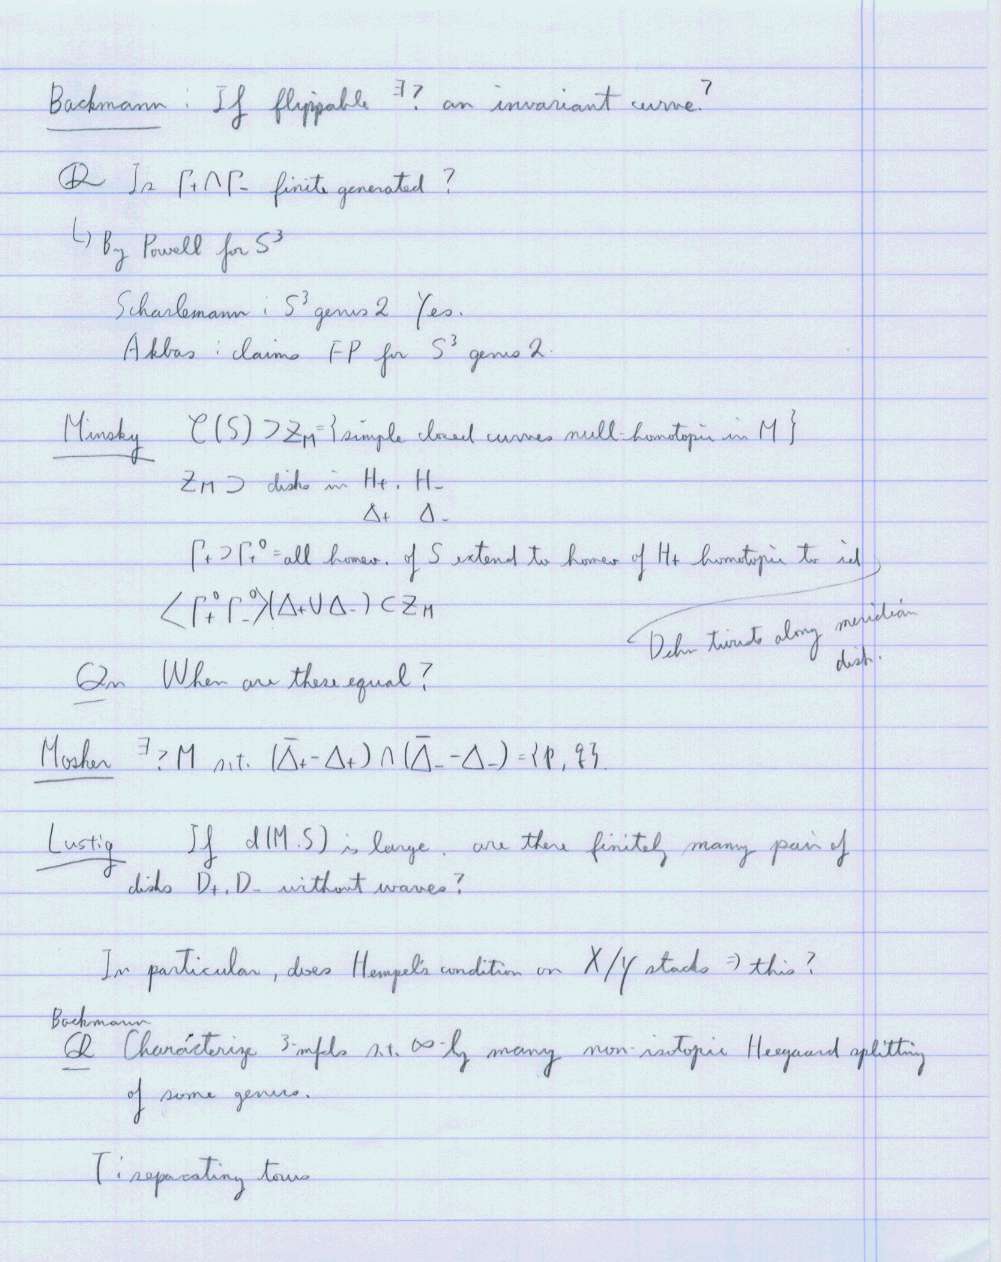 Backmann : If flippable ∃? an invariant curve?
Q Is Γ₊∩Γ₋ finite generated ?
↳ By Powell for S³
Scharlemann : S³ genus 2 Yes.
Akbas : claims FP for S³ genus 2.
Minsky 𝒞(S) ⊃ Z_M = {simple closed curves null-homotopic in M }
Z_M ⊃ disks in H₊, H₋
Δ₊ Δ₋
Γ₊ ⊃ Γ₊⁰ = all homeo. of S extend to homeo of H₊ homotopic to id
⟨Γ₊⁰ Γ₋⁰⟩(Δ₊∪Δ₋) ⊂ Z_M
Dehn twists along meridian disk.
Qn When are these equal ?
Mosher ∃? M s.t. (Δ̄₊-Δ₊) ∩ (Δ̄₋-Δ₋) = {p, q}.
Lustig If d(M.S) is large, are there finitely many pair of
disks D₊, D₋ without waves?
In particular, does Hempel's condition on X/Y stacks ⇒ this ?
Backmann
Q Characterize 3-mfds s.t. ∞-ly many non-isotopic Heegaard splitting
of some genus.
T : separating torus